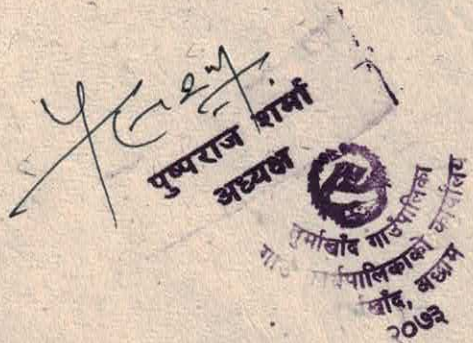 पुष्पराज शर्मा
अध्यक्ष
तुर्माखाँद गाउँपालिका
गाउँ कार्यपालिकाको कार्यालय
खाँद, अछाम
२०७३